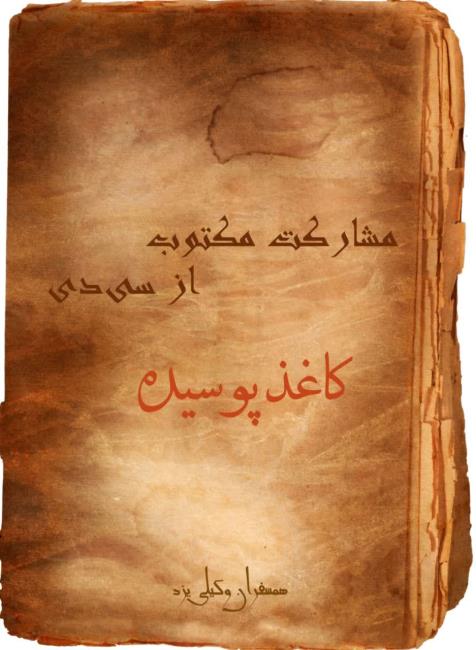 مشارکت مکتوب
از سی‌دی
کاغذ پوسیده
همسفران وکیلی یزد